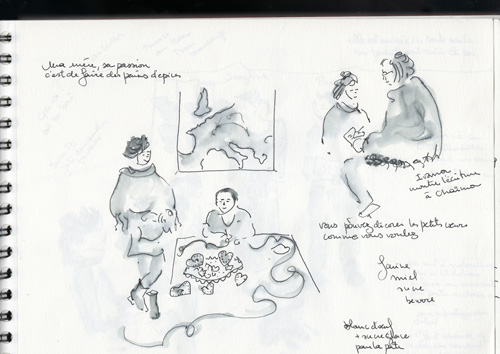 Ma mère, sa passion
c'est de faire des pains d'épices
Ivana
montre l'écriture
à Chaïma
vous pouvez décorer les petits coeurs
comme vous voulez
farine
miel
sucre
beurre
blanc d'oeuf
+ sucre glace
pour la pâte